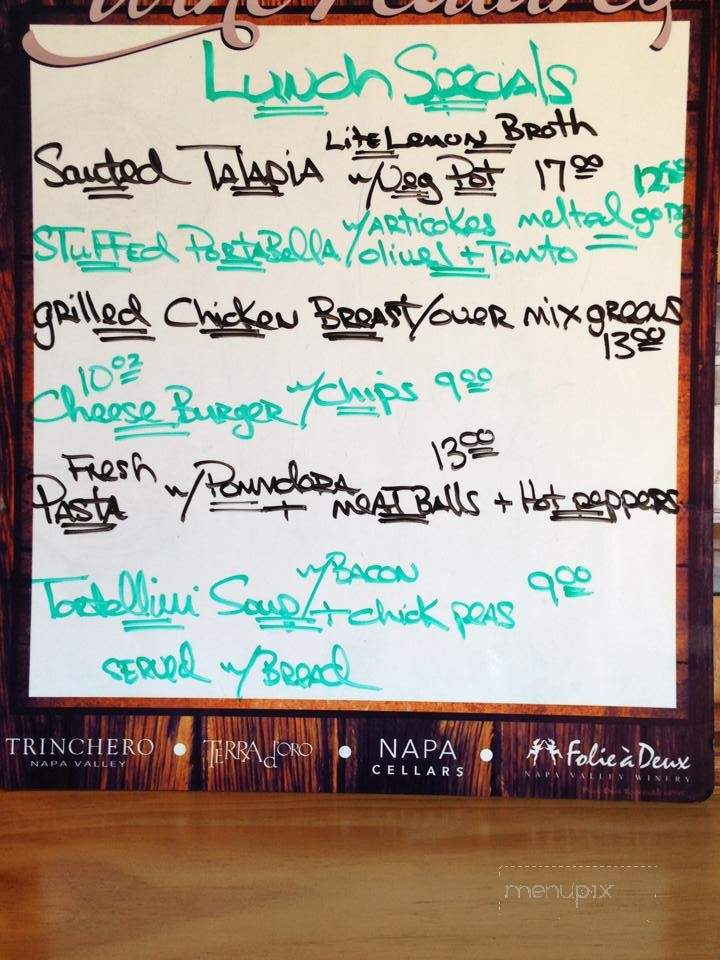 Wine Features
Lunch Specials
Lite Lemon Broth
Sauted Talapia w/Veg Pot 17.00
12.00
w/Articokes melted gorg
Stuffed Portabella /olives + Tomto
grilled Chicken Breast/over mix greens
13.00
10 oz
Cheese Burger w/chips 9.00
13.00
Fresh
Pasta w/Pomndora + meatBalls + Hot peppers
w/Bacon 9.00
Tortellini Soup/+ chick peas
served w/Bread
TRINCHERO • TERRA d'ORO • NAPA • Folie à Deux
NAPA VALLEY CELLARS NAPA VALLEY WINERY
menupix